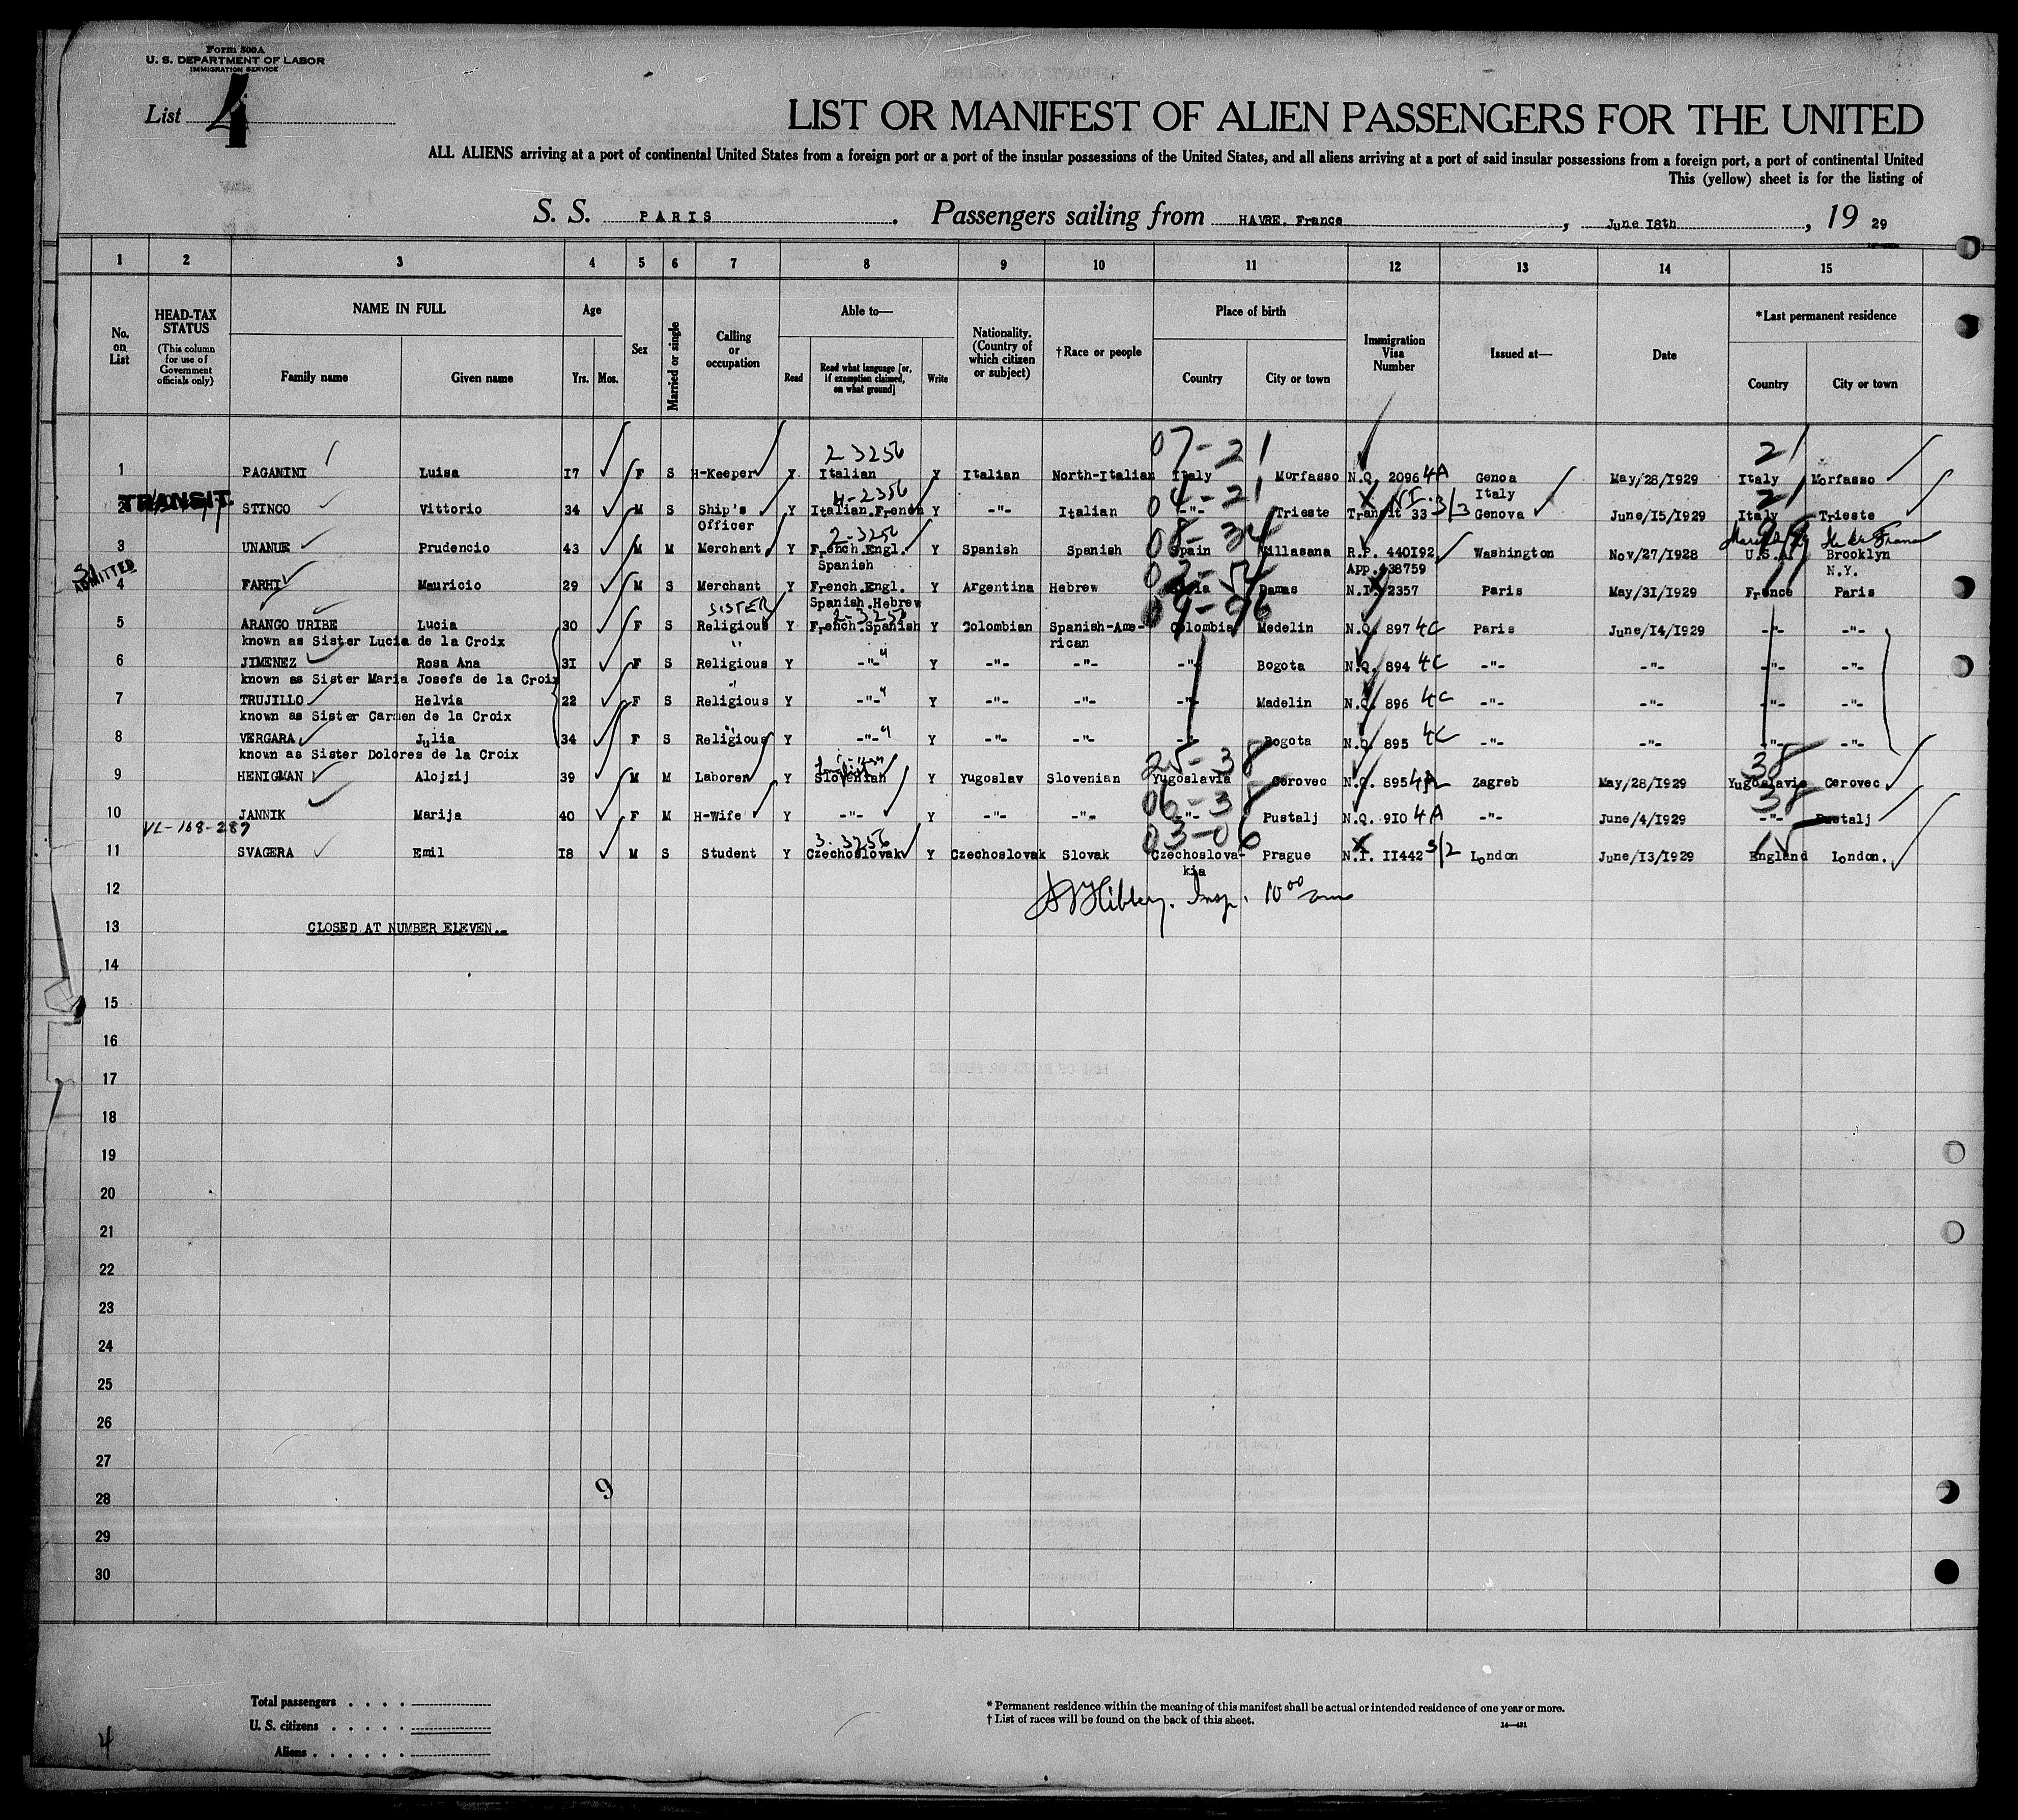 Form 500A
U. S. DEPARTMENT OF LABOR
IMMIGRATION SERVICE
List 4
LIST OR MANIFEST OF ALIEN PASSENGERS FOR THE UNITED
ALL ALIENS arriving at a port of continental United States from a foreign port or a port of the insular possessions of the United States, and all aliens arriving at a port of said insular possessions from a foreign port, a port of continental United
This (yellow) sheet is for the listing of
S. S. PARIS. Passengers sailing from HAVRE, France, June I8th, 19 29
1 2 3 4 5 6 7 8 9 10 11 12 13 14 15
No. on List
HEAD-TAX STATUS (This column for use of Government officials only)
NAME IN FULL
Family name Given name
Age
Yrs. Mos.
Sex
Married or single
Calling or occupation
Able to—
Read
Read what language [or, if exemption claimed, on what ground]
Write
Nationality. (Country of which citizen or subject)
†Race or people
Place of birth
Country City or town
Immigration Visa Number
Issued at—
Date
*Last permanent residence
Country City or town
07-21 21
2-3256
1 PAGANINI Luisa I7 F S H-Keeper Y Italian Y Italian North-Italian Italy Morfasso N.Q. 2096 4A Genoa May/28/I929 Italy Morfasso
Italy
TRANSIT.
4-2356 04-21 X N I. 21
2 STINCO Vittorio 34 M S Ship's Y Italian.French Y -"- Italian -"- Trieste Transit 33 3/3 Genova June/I5/I929 Italy Trieste
Officer
2-3256 08-34
3 UNANUE Prudencio 43 M M Merchant Y French.Engl. Y Spanish Spanish Spain Villasana R.P. 440I92 Washington Nov/27/I928 U.S.A. Brooklyn
Spanish App. 438759 N.Y.
ADMITTED
4 FARHI Mauricio 29 M S Merchant Y French.Engl. Y Argentina Hebrew Damas N.I. 2357 Paris May/3I/I929 France Paris
SISTER Spanish.Hebrew
2-3256 04-96
5 ARANGO URIBE Lucia 30 F S Religious Y French.Spanish Y Colombian Spanish-Ame- Colombia Medelin N.Q. 897 4C Paris June/I4/I929 -"- -"-
known as Sister Lucia de la Croix rican
6 JIMENEZ Rosa Ana 3I F S Religious Y -"- Y -"- -"- -"- Bogota N.Q. 894 4C -"- -"- -"- -"-
known as Sister Maria Josefa de la Croix
7 TRUJILLO Helvia 22 F S Religious Y -"- Y -"- -"- -"- Madelin N.Q. 896 4C -"- -"- -"- -"-
known as Sister Carmen de la Croix
8 VERGARA Julia 34 F S Religious Y -"- Y -"- -"- -"- Bogota N.Q. 895 4C -"- -"- -"- -"-
known as Sister Dolores de la Croix
25-38 38
9 HENIGMAN Alojzij 39 M M Laborer Y Slovenian Y Yugoslav Slovenian Yugoslavia Cerovec N.Q. 895 Zagreb May/28/I929 Yugoslavia Cerovec
06-38 38
10 JANNIK Marija 40 F M H-Wife Y -"- Y -"- -"- -"- Pustalj N.Q. 9I0 4A -"- June/4/I929 -"- Pustalj
VL-168-287
3.3256 03-06 X
11 SVAGERA Emil I8 M S Student Y Czechoslovak Y Czechoslovak Slovak Czechoslova- Prague N.I. II442 3/2 London June/I3/I929 England London.
kia
12 Insp. 10 00 am
13 CLOSED AT NUMBER ELEVEN.-
14
15
16
17
18
19
20
21
22
23
24
25
26
27
9
28
29
30
Total passengers . . . .
U. S. citizens . . . . .
Aliens . . . . . .
4
* Permanent residence within the meaning of this manifest shall be actual or intended residence of one year or more.
† List of races will be found on the back of this sheet.
14—431